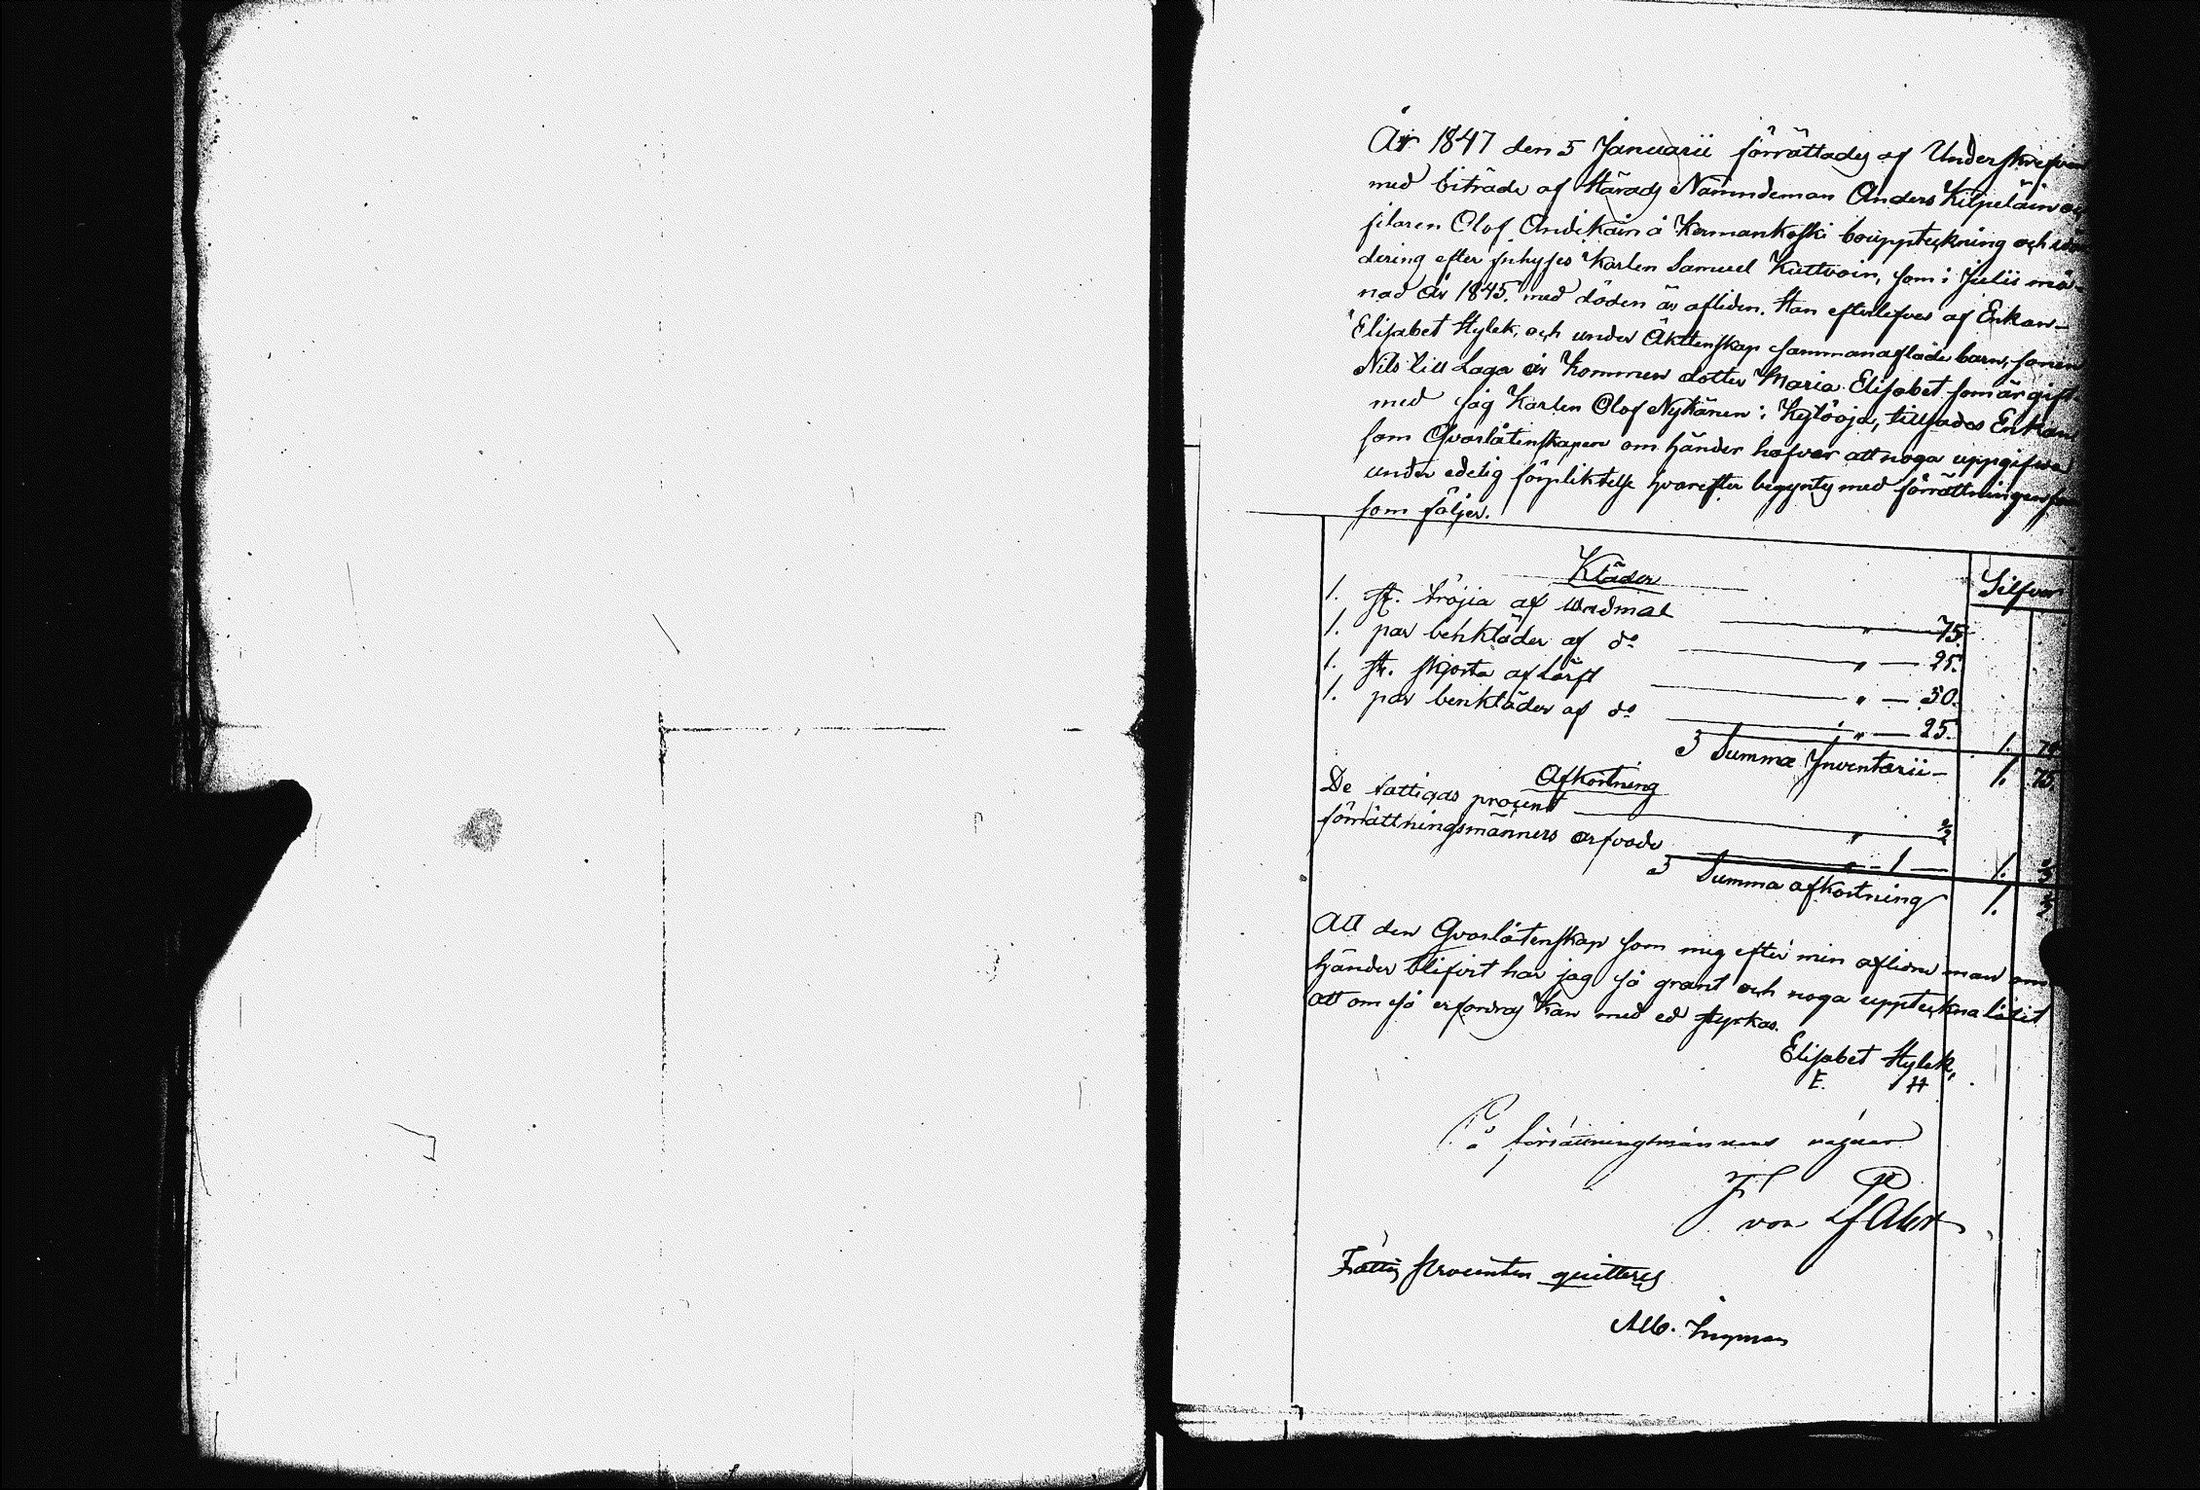 År 1847 den 5 Januarii förrättades af Underskrefven
med biträde af Härads Nämndeman Anders Kilpeläin och
filaren Olof Andikain å Karmankoski bouppteckning och wär
dering efter inhyses Karlen Samuel Kuttvoin, som i Julii må-
nad år 1845. med döden är afliden. Han efterlefves af Enkan
Elisabet Hylek, och under Äktenskap sammanaflade barn, sonen
Nils till Laga år Kommen dotter Maria Elisabet som är gift
med jag Karlen Olof Nykänen i Keylöoja, tillsades Enkan
som Qvarlåtenskapen om händer hafver att noga uppgifva
under edelig förpliktelse hvarefter begyntes med förrättningen
som följer.
Kläder
Silfver
1. st. tröja af wadmal " 75.
1. par benkläder af do " — 25.
1. st. skjorta af Lärft " — 50.
1. par benkläder af do " — 25. 1. 75.
Summa Inventarii — 1. 75.
Afkortning
De fattigas procent " 2/2
förrättningsmänners arfvode " — 1 — 1.
Summa afkortning 1.
Att den Qvarlåtenskap som mig efter min aflidne man om
händer blifvit har jag så grant och noga uppteckna låtit
att om så erfordras Kan med ed styrkas.
Elisabet Hylek,
E. H
På förrättningsmännens vägnar
von
Fattig Procenten quitteres
Alb. Ingman